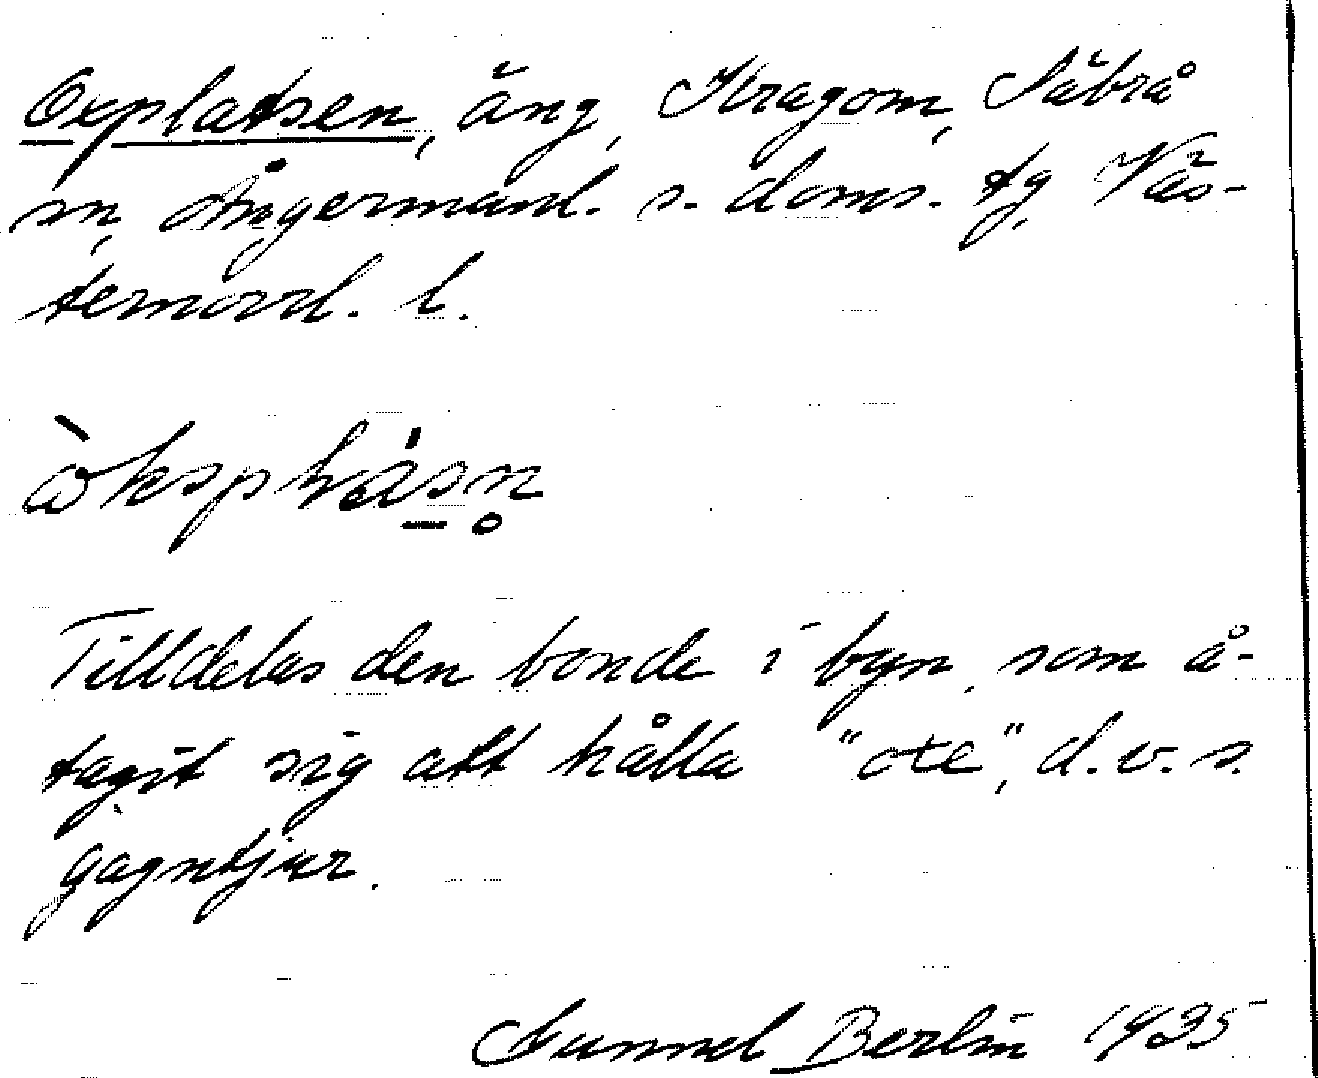 Oxplatsen, äng, Kragom, Säbrå
sn, Ångermanl. s. doms. tg, Väs-
ternorrl. l.
Tilldelas den bonde i byn, som å-
tagit sig att hålla "oxe", d.v.s.
gagntjur.
Gunnel Berlin 1935